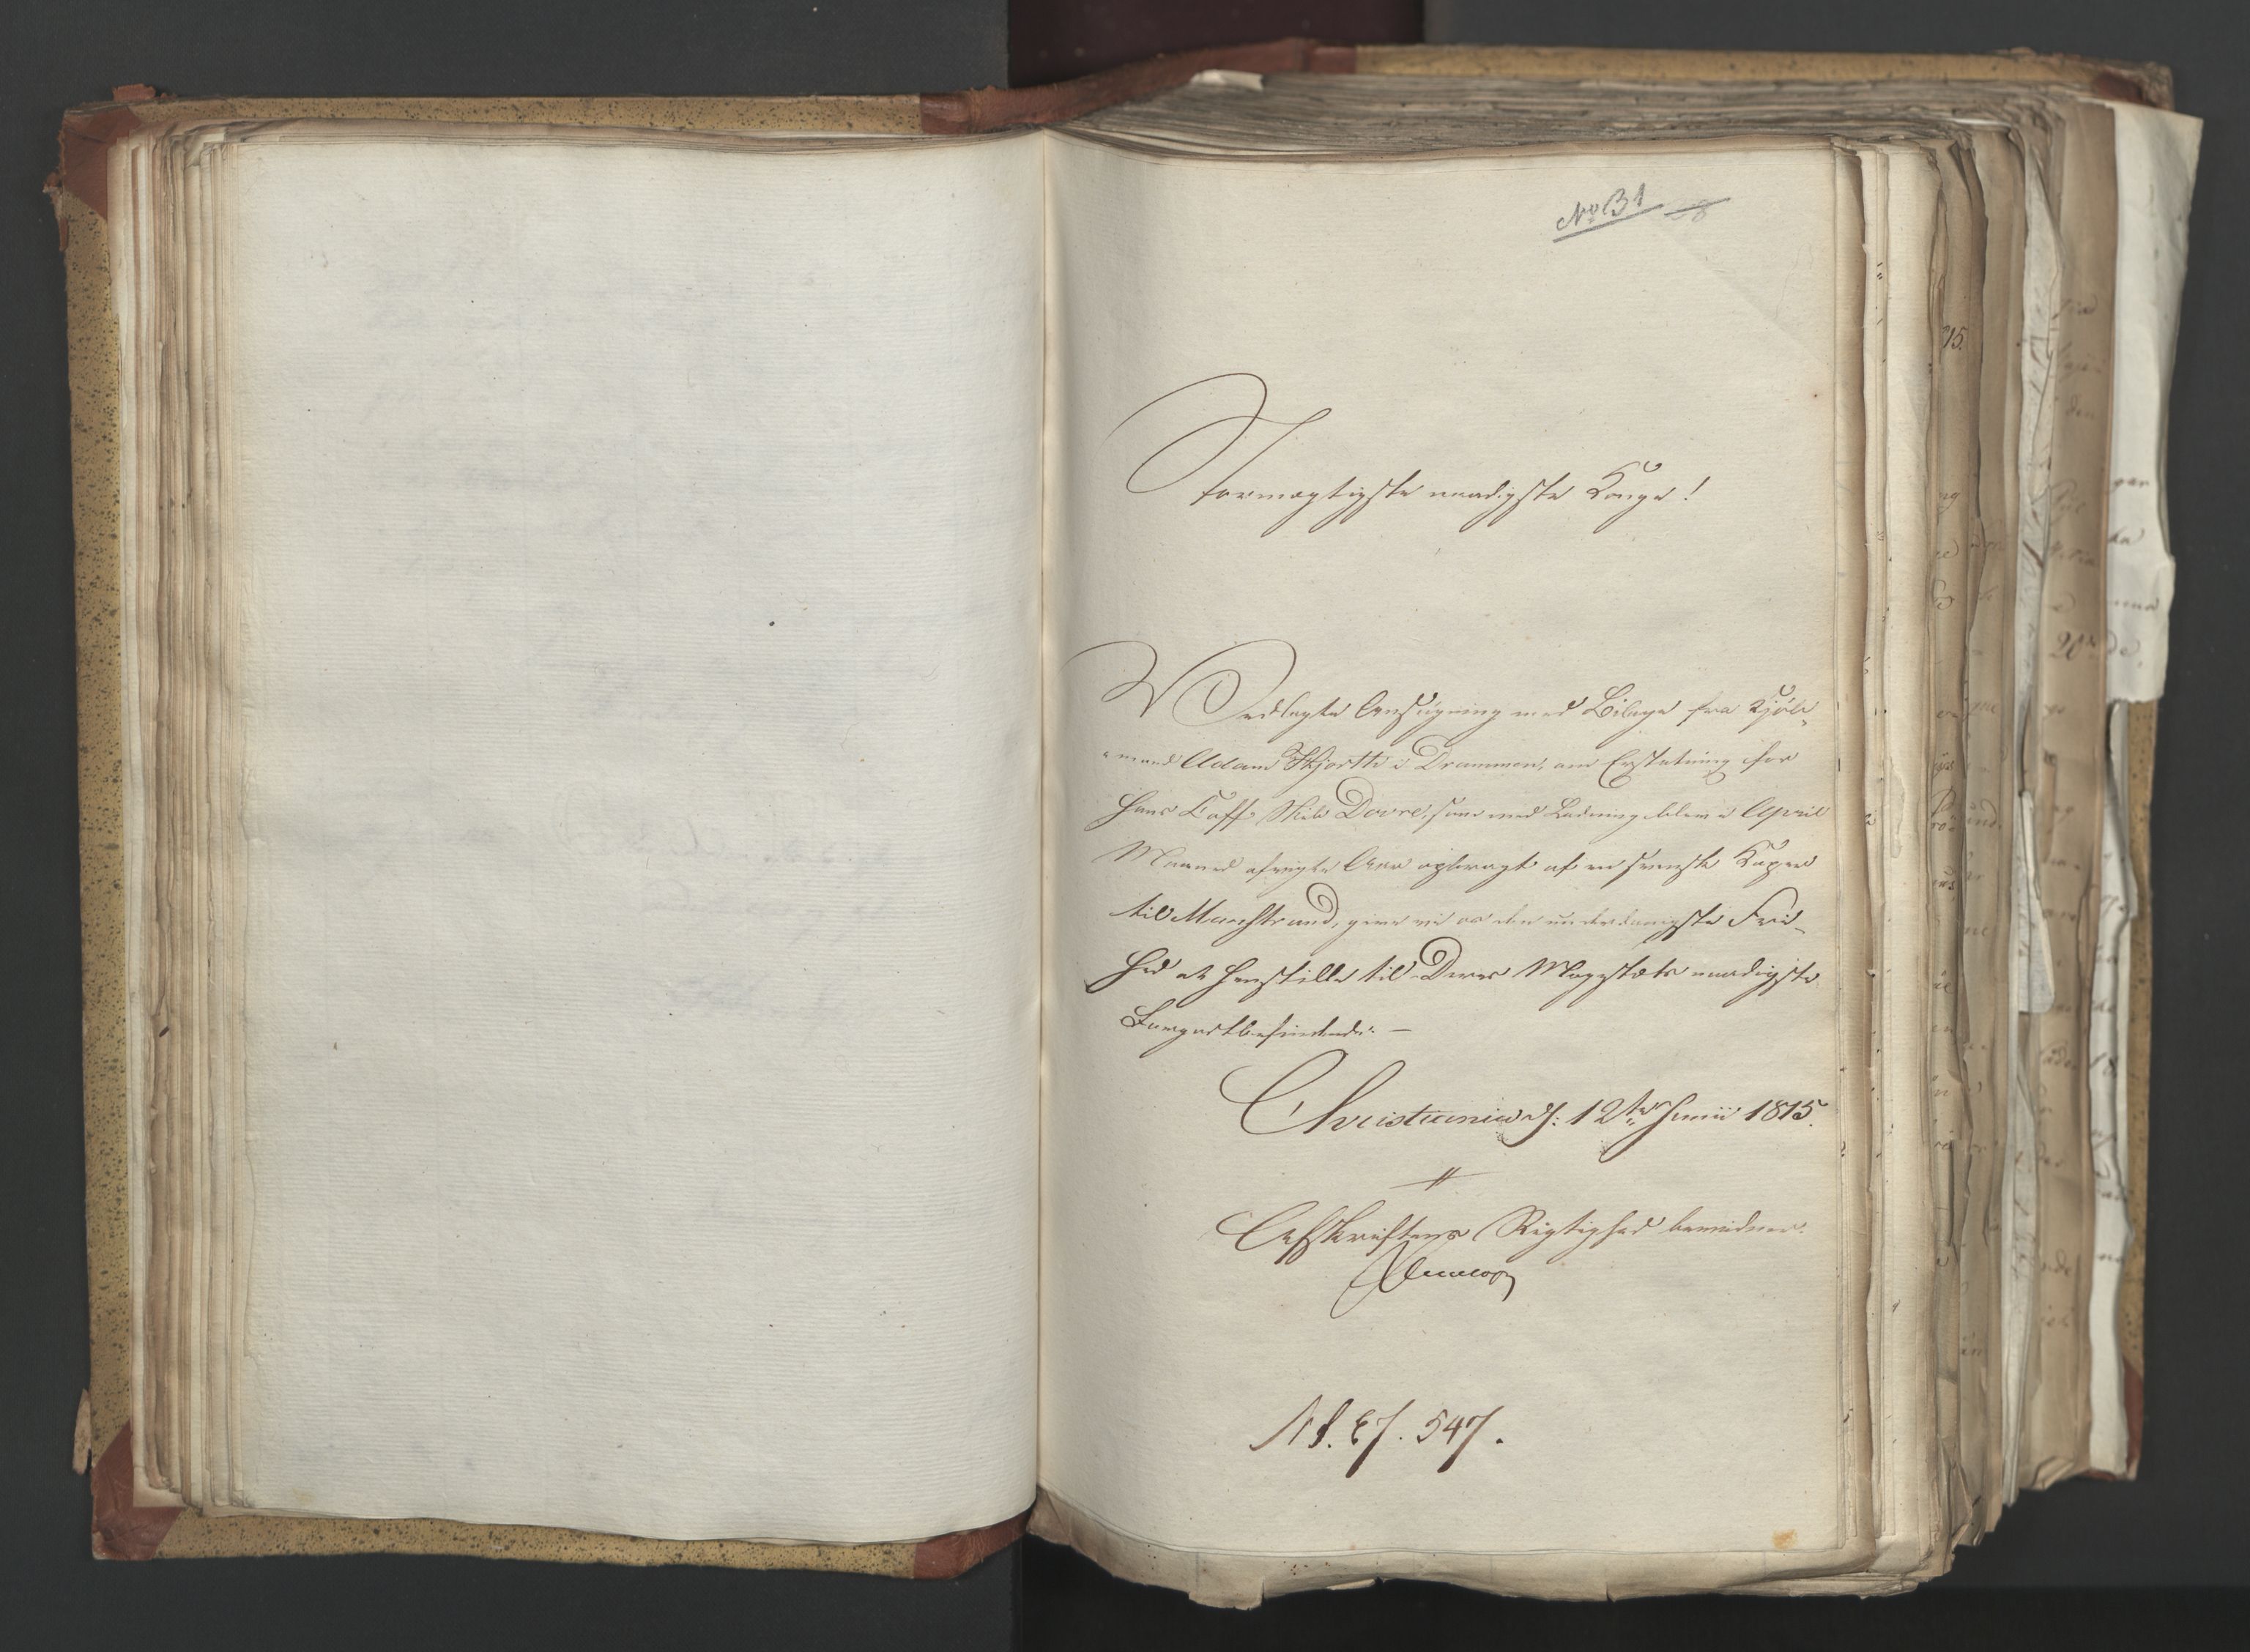 No 31 38
Stormægtigste naadigste Konge!
Vedlagte Ansøgning med Bilage fra Kjøb-
mand Adam Hjorth i Drammen, om Erstatning for
hans Skib Dovre, som med Ladning blev i April
Maaned afvigte Aar opbragt af en svensk Kaper
til Marstrand, give vi os den underdanigste Fri-
hed at henstille til Deres Majestæts naadigste
Forgodtbefindende. —
Christiania d. 12te Junii 1815.
Afskriftens Rigtighed bevidner.
547.